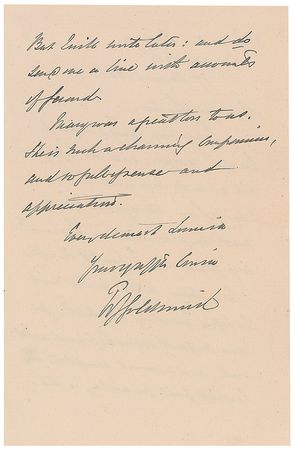 But I will write later: and do
send me a line with accounts
of
Mary was a great loss to us.
She is such a charming companion,
and so full of sense and
appreciation.
Ever dearest Louisa
Your affte Cousin
Goldsmid